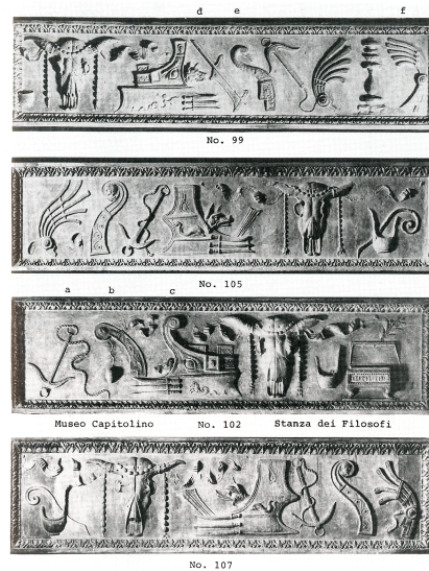 d e f
No. 99
No. 105
a b c
Museo Capitolino No. 102 Stanza dei Filosofi
No. 107